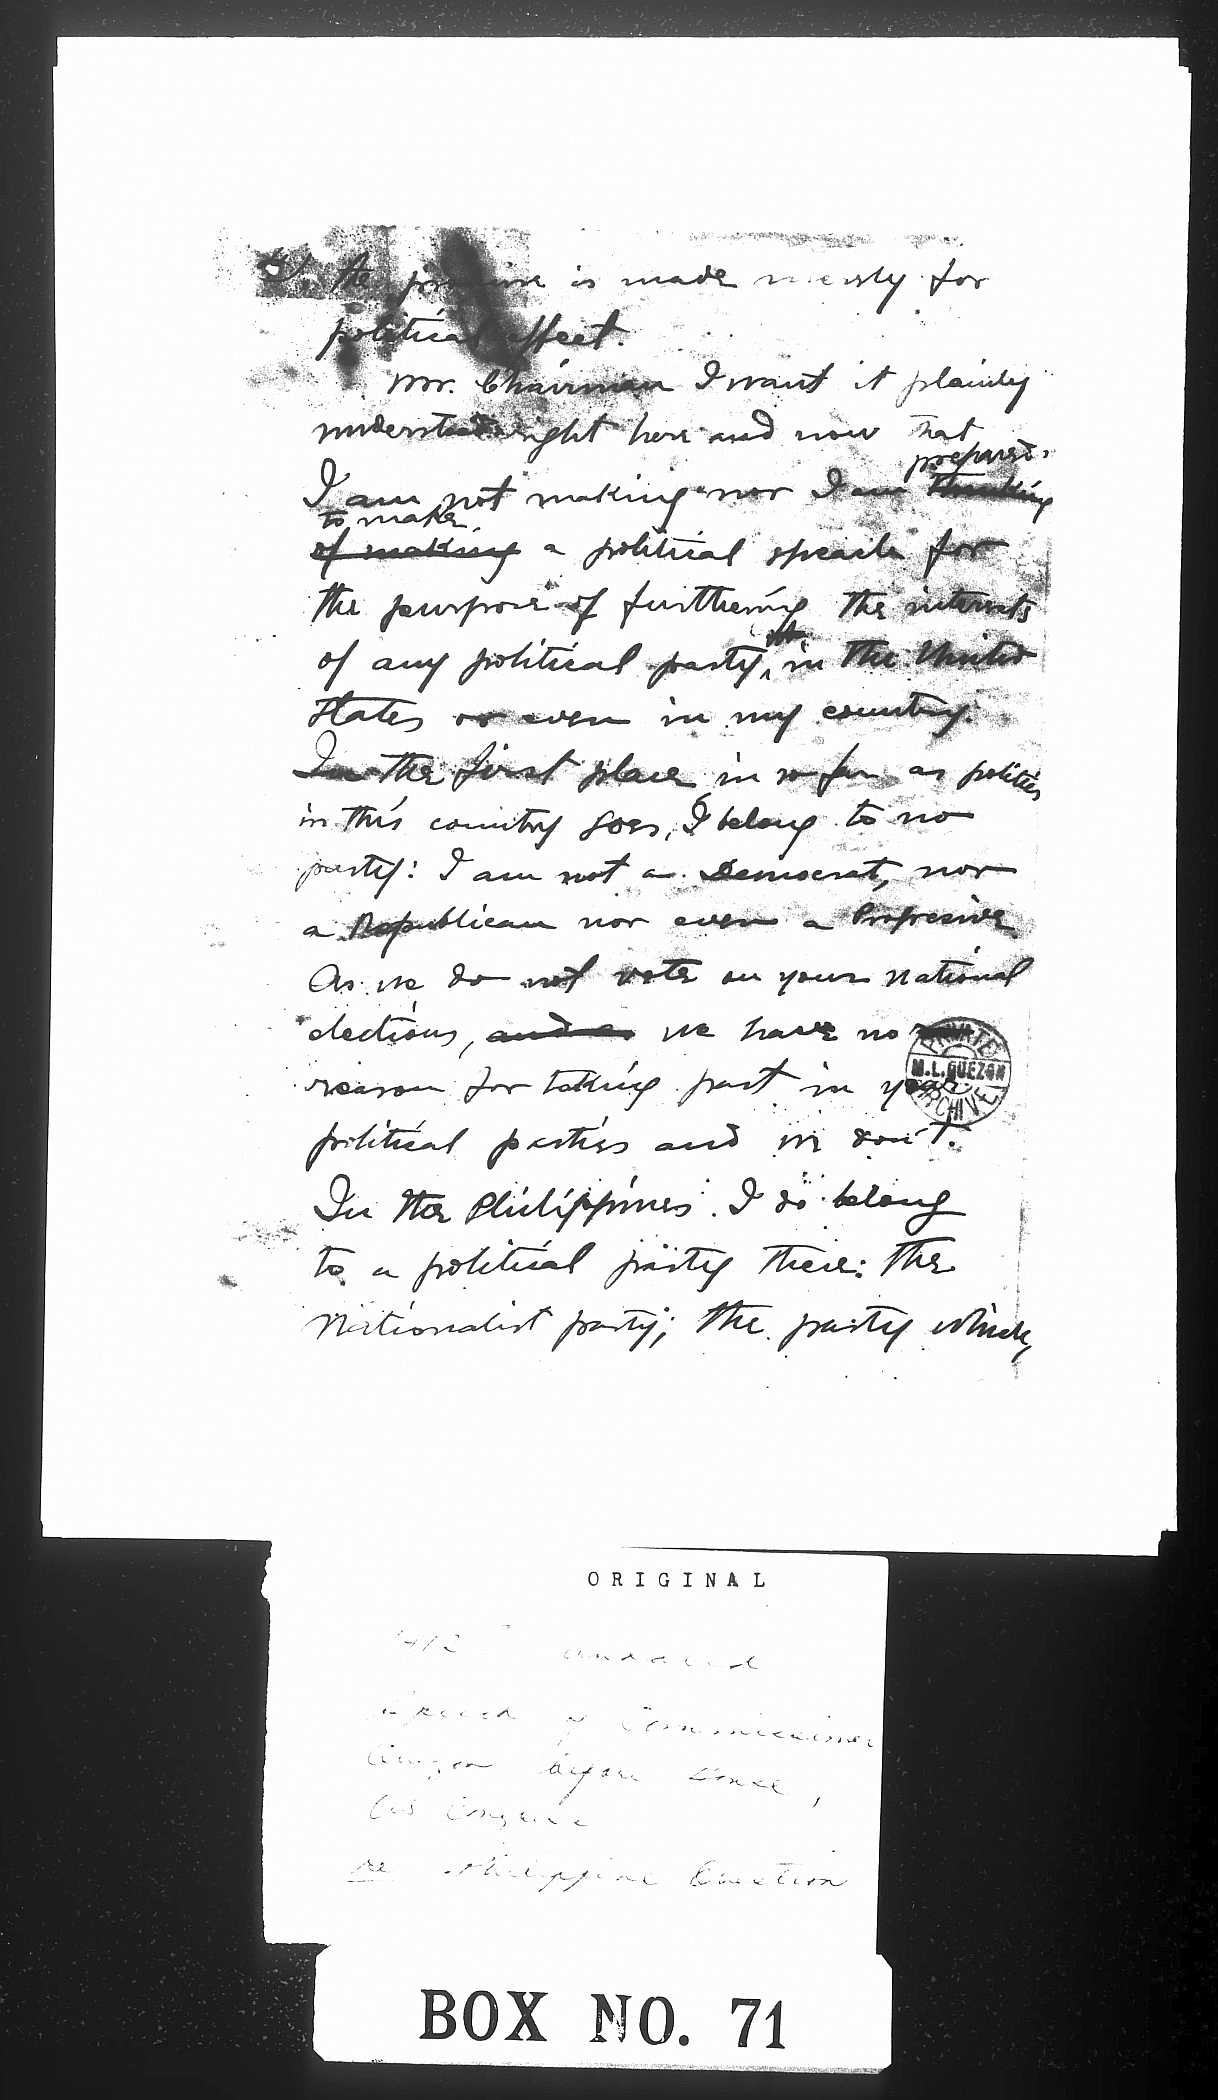 the promise is made merely for
political effect.
Mr. Chairman I want it plainly
understood right here and now that
prepared
I am not making nor I am thinking
to make
of making a political speach for
the purpose of furthering the interests
of any political party, in the United
States or even in my country.
In the first place in so far as politics
in this country goes, I belong to no
party: I am not a Democrat, nor
a Republican nor even a Progresive
As we do not vote on your national
elections, and we have no
reason for taking part in your
political parties and we don't.
In the Philippines I do belong
to a political party there: the
Nationalist party; the party which,
PRIVATE
M.L.QUEZON
ARCHIVE
ORIGINAL
1912 undated
Speech of Commissioner
Quezon before House,
US Congress
re Philippine Question
BOX NO. 71